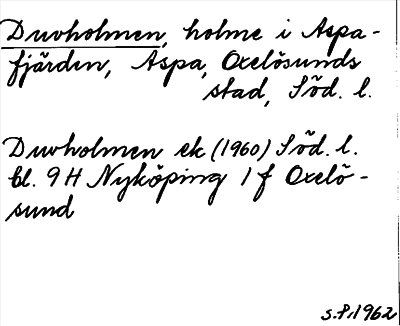 Duvholmen, holme i Aspa-
fjärden, Aspa, Oxelösunds
stad, Söd. l.
Duvholmen ek (1960) Söd. l.
bl. 9H Nyköping 1 f Oxelö-
sund
S.P. 1962